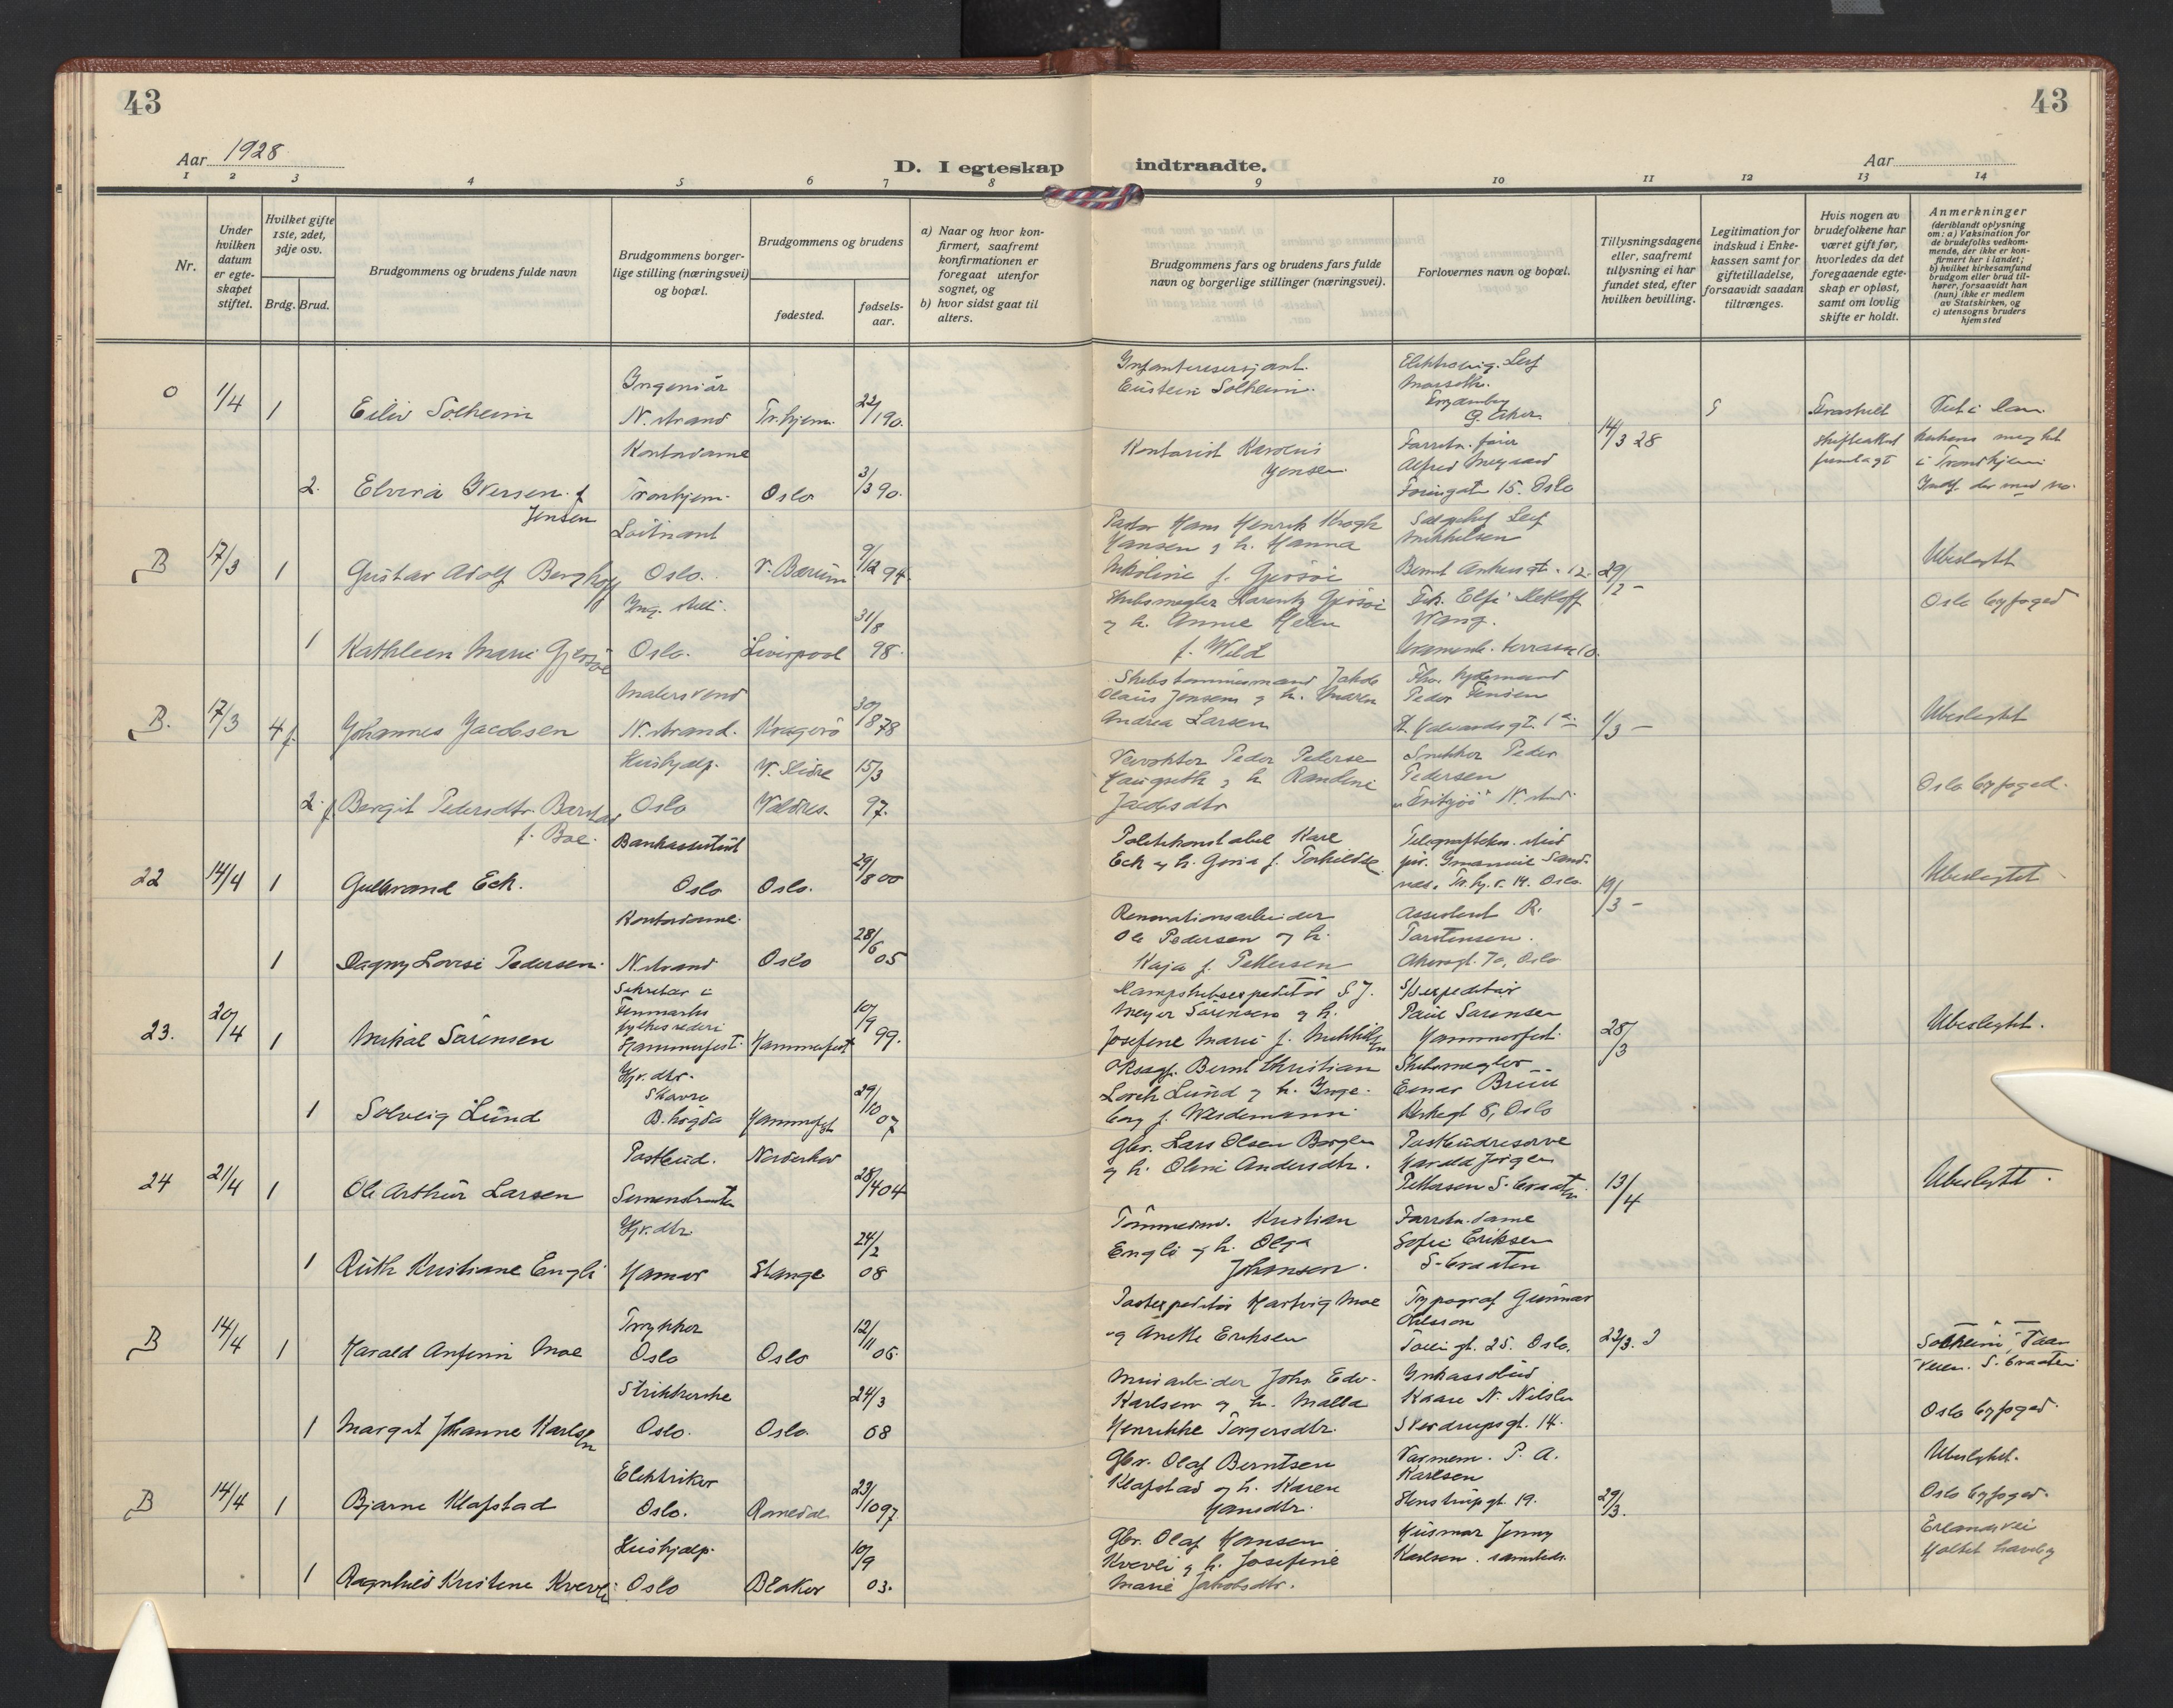 43
43
Aar 1928
D. I egteskap indtraadte.
Aar
1 2 3 4 5 6 7 8 9 10 11 12 13 14
Nr.
Under hvilken datum er egteskapet stiftet.
Hvilket gifte 1ste, 2det, 3dje osv.
Brdg. Brud.
Brudgommens og brudens fulde navn
Brudgommens borgerlige stilling (næringsvei) og bopæl.
Brudgommens og brudens
fødested.
fødselsaar.
a) Naar og hvor konfirmert, saafremt konfirmationen er foregaat utenfor sognet, og
b) hvor sidst gaat til alters.
Brudgommens fars og brudens fars fulde navn og borgerlige stillinger (næringsvei).
Forlovernes navn og bopæl.
Tillysningsdagene eller, saafremt tillysning ei har fundet sted, efter hvilken bevilling.
Legitimation for indskud i Enkekassen samt for giftetilladelse, forsaavidt saadan tiltrænges.
Hvis nogen av brudefolkene har været gift før, hvorledes da det foregaaende egteskap er opløst, samt om lovlig skifte er holdt.
Anmerkninger
(deriblandt oplysning om: a) Vaksination for de brudefolks vedkommende, der ikke er konfirmert her i landet; b) hvilket kirkesamfund brudgom eller brud tilhører, forsaavidt han (hun) ikke er medlem av Statskirken, og c) utensogns bruders hjemsted
0 1/4 1 Eiliv Solheim
Ingeniør
N. strand Tr.hjem. 22/1 90.
Eistein Solheim.
14/3 28
2. Elvira Iversen f.
Jensen
Kontordame
Tronhjem. Oslo 3/3 90.
Kontorist Karolus
Jensen
Forretn. fører
Alfred
15. Oslo
i Trondhjem
B 17/3 1 Gustav Adolf Berghoff
Løitnant
Oslo. V. Bærum 9/12 94.
Pastor Hans Henrik Krogh
Hansen og h. Hanna
Nikoline f. Gjersøe
Leif
Mikkelsen
Bernt Ankersgt. 12.
29/2 -
Ubeslegtet
Oslo byfoged
1 Kathleen Marie Gjersøe
Oslo. Liverpool 31/8 98.
Skibsmegler Laurentz Gjersøe
og h. Annie Helen
f. Wild
Frk. Elfi
Wang.
terrasse 10.
B. 17/3 4 f. Johannes Jacobsen
Malersvend
N. strand. Kragerø 30/8 78
Skibstømmermand Jakob
Olaus Jensen og h. Maren
Andrea Larsen
Peder Jensen
1/3 -
Ubeslegtet
2. f. Bergit Pedersdtr. Barstad
f. Boe.
Hushjælp.
Oslo V. Slidre Valdres. 15/3 97.
Peder Pedersen
og h. Randine
Jacobsdtr
Snekker Peder
Pedersen
N. strand
Oslo byfoged.
22 14/4 1 Gulbrand Eck.
Bankassistent
Oslo Oslo. 29/8 00
Politikonstabel Karl
Eck og h. Goria f. Torkildsen
Tr. hj. v. 14. Oslo.
19/3 -
Ubeslegtet
1 Dagny Lovise Pedersen.
Kontordame.
N. strand Oslo 28/6 05
Renovationsarbeider
Ole Pedersen og h.
Kaja f. Pettersen
Assistent R.
Torstensen.
Akersgt. 7a, Oslo
23. 20/4 1 Mikal Sørensen
Sekretær i
Finmarks
fylkesrederi
Hammerfest. Hammerfest 10/9 99.
Dampskibsexpeditør S. J.
Meyer Sørensen og h.
Josefine Marie f. Mikkelsen
Expeditør
Paul Sørensen
Hammerfest.
28/3
Ubeslegtet.
1 Solveig Lund
Hjv. dtr.
B. høgda Hammerfest 29/10 07
Oksagf. Bernt Christian
Lorck Lund og h. Inge-
borg f. Weidemann.
Skibsmegler
Einar Bruu
Kirkegt 8, Oslo
24 21/4 1 Ole Arthur Larsen
Postbud. Norderhov
Semenstrøten 28/4 04
Gbr. Lars Olsen Borgen
og h. Oline Andersdtr.
Postbudreserve
Harald Jørgen
Pettersen S. braaten
13/4
Ubeslegtet.
1 Ruth Kristiane Engli
Hjv. dtr.
Hamar Stange 24/2 08
Tømmerm. Kristian
Engli og h. Olga
Johansen.
Forretn. dame
Sofie Eriksen
S. braaten
B 14/4 1 Harald Anfinn Moe
Trykker
Oslo Oslo 12/11 06.
Postexpeditør Hartvig Moe
og Anette Eriksen
Typograf Gunnar
Ohlsson
gt. 25. Oslo.
22/3.
Solheim,
veien. S. braaten
1 Margit Johanne Karlsen
Strikkerske
Oslo. Oslo 24/3 08
Murarbeider John Edv.
Karlsen og h. Malla
Henrikke Torgersdtr.
Kaare N. Nilsen
Sverdrupsgt. 14.
Oslo byfoged.
B 14/4 1 Bjarne Klafstad
Elektriker
Oslo. Romedal 23/10 97.
Gbr. Olaf Berntsen
Klafstad og h. Karen
Hansdtr.
Varmem. P. A.
Karlsen
Stenstrupgt. 19.
29/3.
Ubeslegtet.
Oslo byfoged.
1 Ragnhild Kristene Kverli
Hushjælp.
Oslo Blaker 10/9 03.
Gbr. Olaf Hansen
Kverli og h. Josefine
Marie Jakobsdtr.
Husmor Jenny
Karlsen. samsteds.